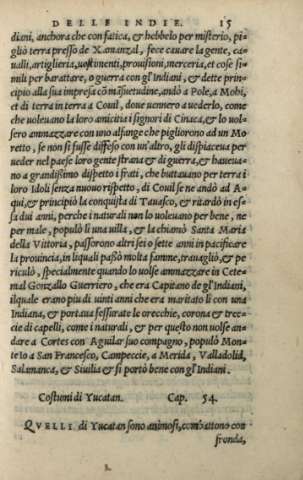 DELLE INDIE. 15
diani, anchora che con fatica, & hebbelo per misterio, pi-
gliò terra presso de Xananzal, fece cauare la gente, ca-
ualli, artiglieria, uestimenti, prouisioni, merceria, et cose si-
mili per barattare, o guerra con gl'Indiani, & dette prin-
cipio alla sua impresa cō māsuetudine, andò a Pole, a Mobi,
et di terra in terra a Couil, doue uennero a uederlo, come
che uoleuano la loro amicitia i signori di Ciuaca, & lo uol-
sero ammazzare con uno alfange che pigliorono ad un Mo
retto, se non si fusse diffeso con un'altro, gli dispiaceua per
ueder nel paese loro gente strana, & di guerra, & haueua-
no a grandissimo dispetto i frati, che buttauano per terra i
loro Idoli senza nuouo rispetto, di Couil se ne andò ad A-
qui, & principiò la conquista di Tauasco, & ritardò in es-
sa dui anni, perche i naturali non lo uoleuano per bene, ne
per male, populò li una uilla, & la chiamò Santa Maria
della Vittoria, passorono altri sei o sette anni in pacificare
la prouincia, in liquali passò molta famme, trauaglio, & pe
riculò, specialmente quando lo uolse ammazzare in Cete-
mal Gonzallo Guerriero, che era Capitano de gl'Indiani,
ilquale erano piu di uinti anni che era maritato li con una
Indiana, & portaua fessurate le orecchie, corona & trec-
cie di capelli, come i naturali, & per questo non uolse an-
dare a Cortes con Aguilar suo compagno, populò Mon-
teio a San Francesco, Campeccie, a Merida, Valladolid,
Salamanca, & Siuilia & si portò bene con gl'Indiani.
Costumi di Yucatan. Cap. 54.
QVELLI di Yucatan sono animosi, combattono con
fronda,